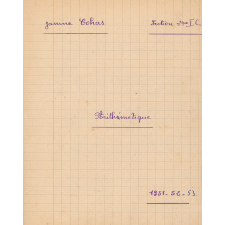 Janine Cohas
Section 2me I.C.
Arithmétique
1951-52-53.